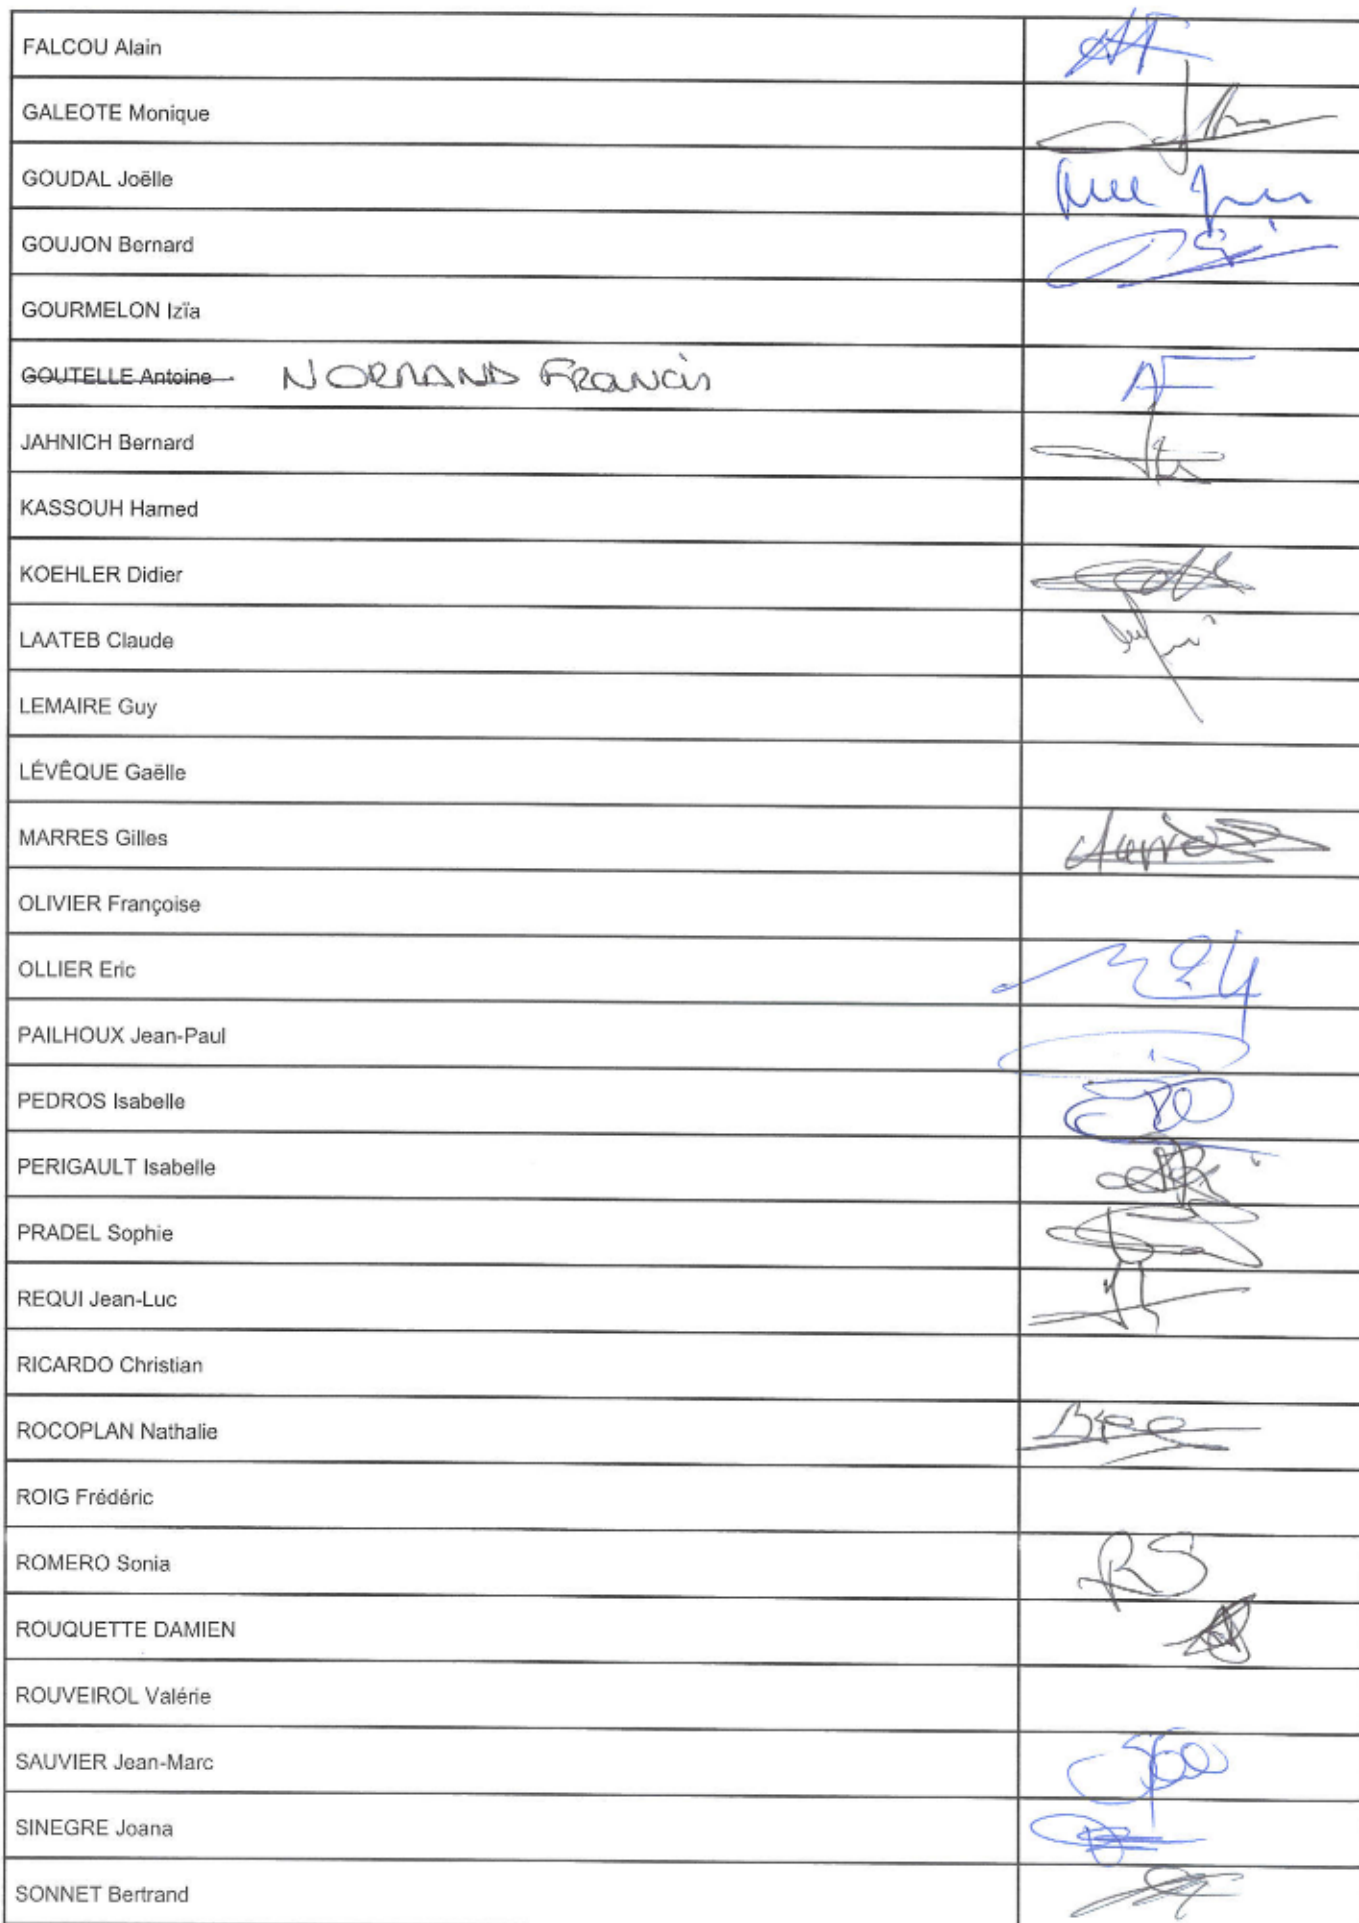 FALCOU Alain
GALEOTE Monique
GOUDAL Joëlle
GOUJON Bernard
GOURMELON Izïa
GOUTELLE Antoine NORMAND Francis
JAHNICH Bernard
KASSOUH Hamed
KOEHLER Didier
LAATEB Claude
LEMAIRE Guy
LÉVÊQUE Gaëlle
MARRES Gilles
OLIVIER Françoise
OLLIER Eric
PAILHOUX Jean-Paul
PEDROS Isabelle
PERIGAULT Isabelle
PRADEL Sophie
REQUI Jean-Luc
RICARDO Christian
ROCOPLAN Nathalie
ROIG Frédéric
ROMERO Sonia RS
ROUQUETTE DAMIEN
ROUVEIROL Valérie
SAUVIER Jean-Marc
SINEGRE Joana
SONNET Bertrand